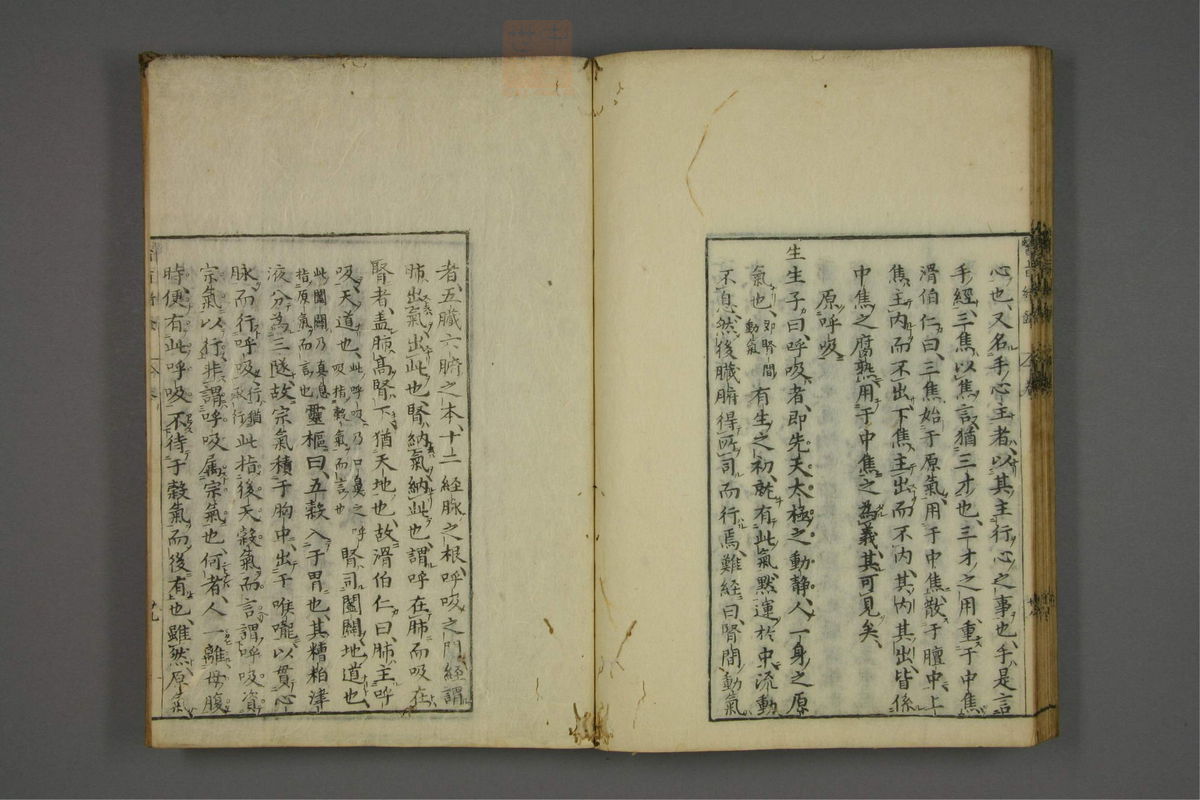 心也、又名手心主者、以其主行心之事也、手是言
手經、三焦以焦言、猶三才也、三才之用、重于中焦
滑伯仁曰、三焦始于原氣、用于中焦、散于膻中、上
焦主内而不出、下焦主出而不内、其内其出、皆係
中焦之腐熟、用于中焦之為義、其可見矣、
原呼吸
生生子曰、呼吸者、即先天太極之動静、人一身之原
氣也、即腎間動氣 有生之初、就有此氣黙運於中、流動
不息、然後臟腑得匹司而行焉、難経曰、腎間動氣
者、五臟六腑之本、十二経脉之根、呼吸之門、経謂
肺出氣、出此也、腎納氣、納此也、謂呼在肺而吸在
腎者、盖肺高腎下、猶天地也、故滑伯仁曰、肺主呼
吸、天道也、此呼吸乃口鼻之呼吸、指穀氣而言也 腎司闔闢、地道也、
此闔闢乃真息、指原氣而言也 靈樞曰、五穀入于胃也、其糟粕津
液、分為三隧、故宗氣積于胸中、出于喉嚨、以貫心
脉而行呼吸、此指後天穀氣而言、謂呼吸資
宗氣以行、非謂呼吸属宗氣也、何者、人一離母腹
時、便有此呼吸、不待于穀氣而後有也、雖然原氣